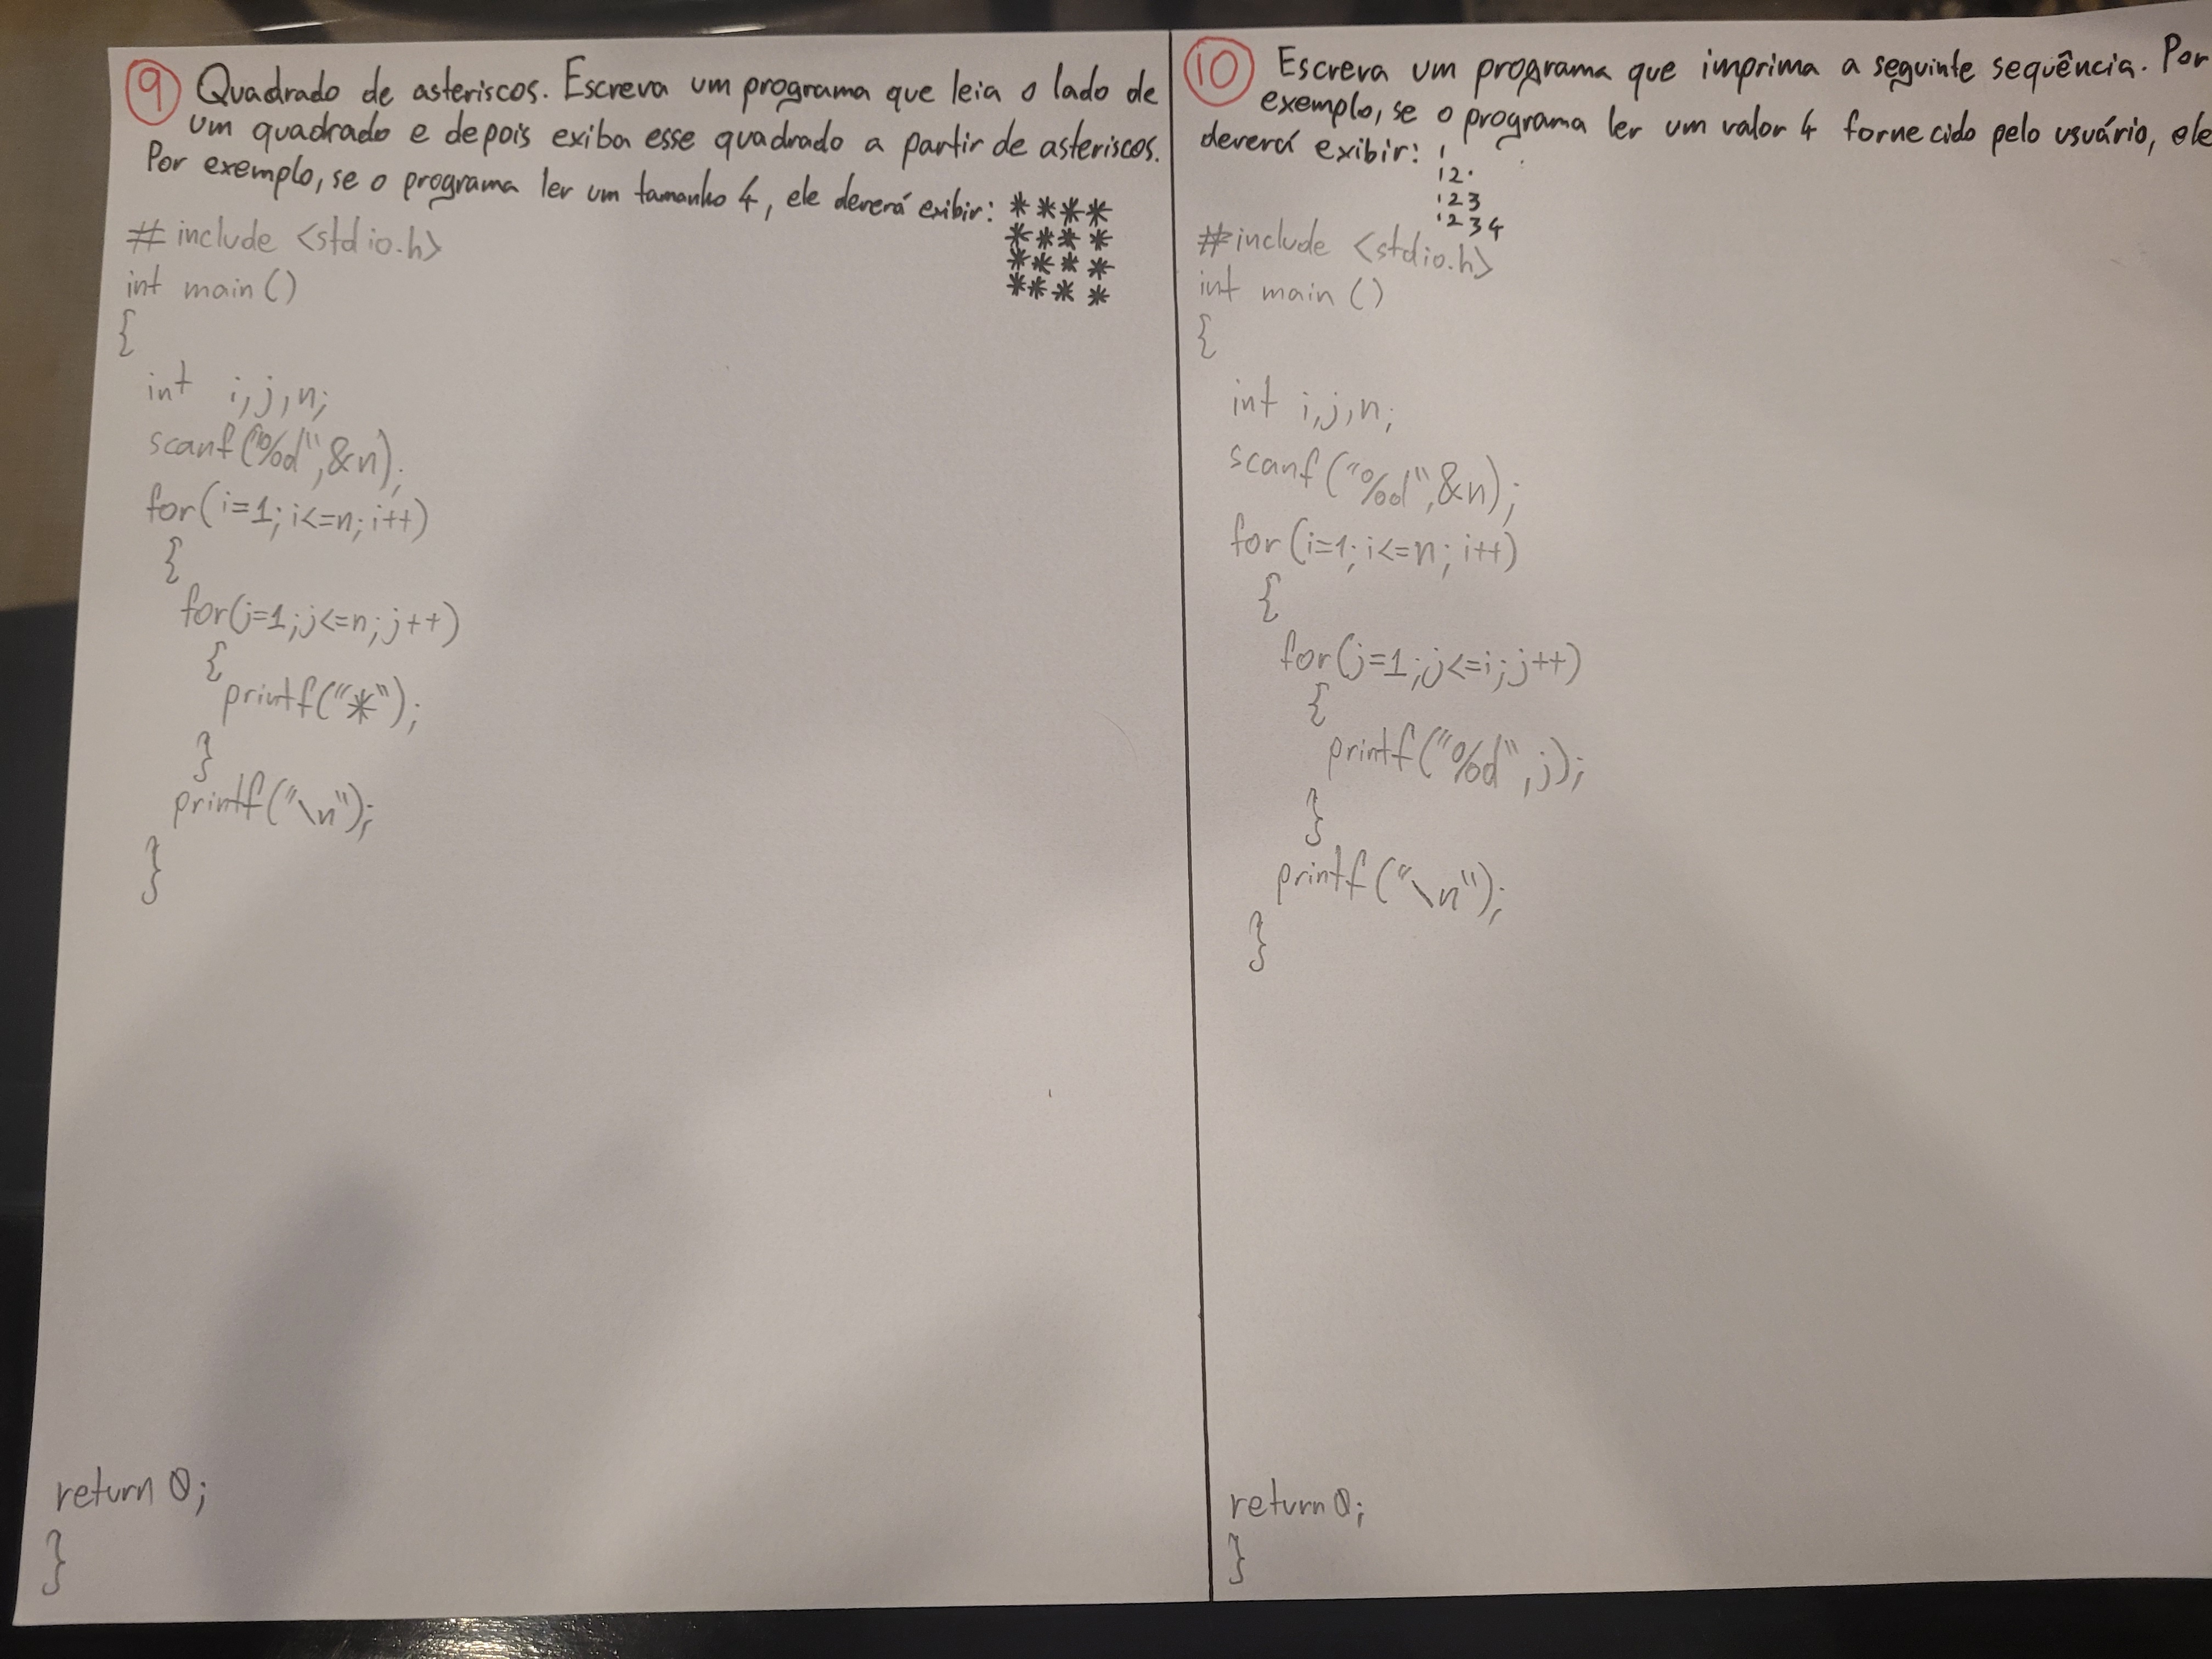 9 Quadrado de asteriscos. Escreva um programa que leia o lado de
um quadrado e depois exiba esse quadrado a partir de asteriscos.
Por exemplo, se o programa ler um tamanho 4, ele deverá exibir: ****
****
****
****
#include <stdio.h>
int main()
{
int i,j,n;
scanf("%d",&n);
for(i=1;i<=n;i++)
{
for(j=1;j<=n;j++)
{
printf("*");
}
printf("\n");
}
return 0;
}
10 Escreva um programa que imprima a seguinte sequência. Por
exemplo, se o programa ler um valor 4 fornecido pelo usuário, ele
deverá exibir: 1
12
123
1234
#include <stdio.h>
int main()
{
int i,j,n;
scanf("%d",&n);
for(i=1;i<=n;i++)
{
for(j=1;j<=i;j++)
{
printf("%d",j);
}
printf("\n");
}
return 0;
}